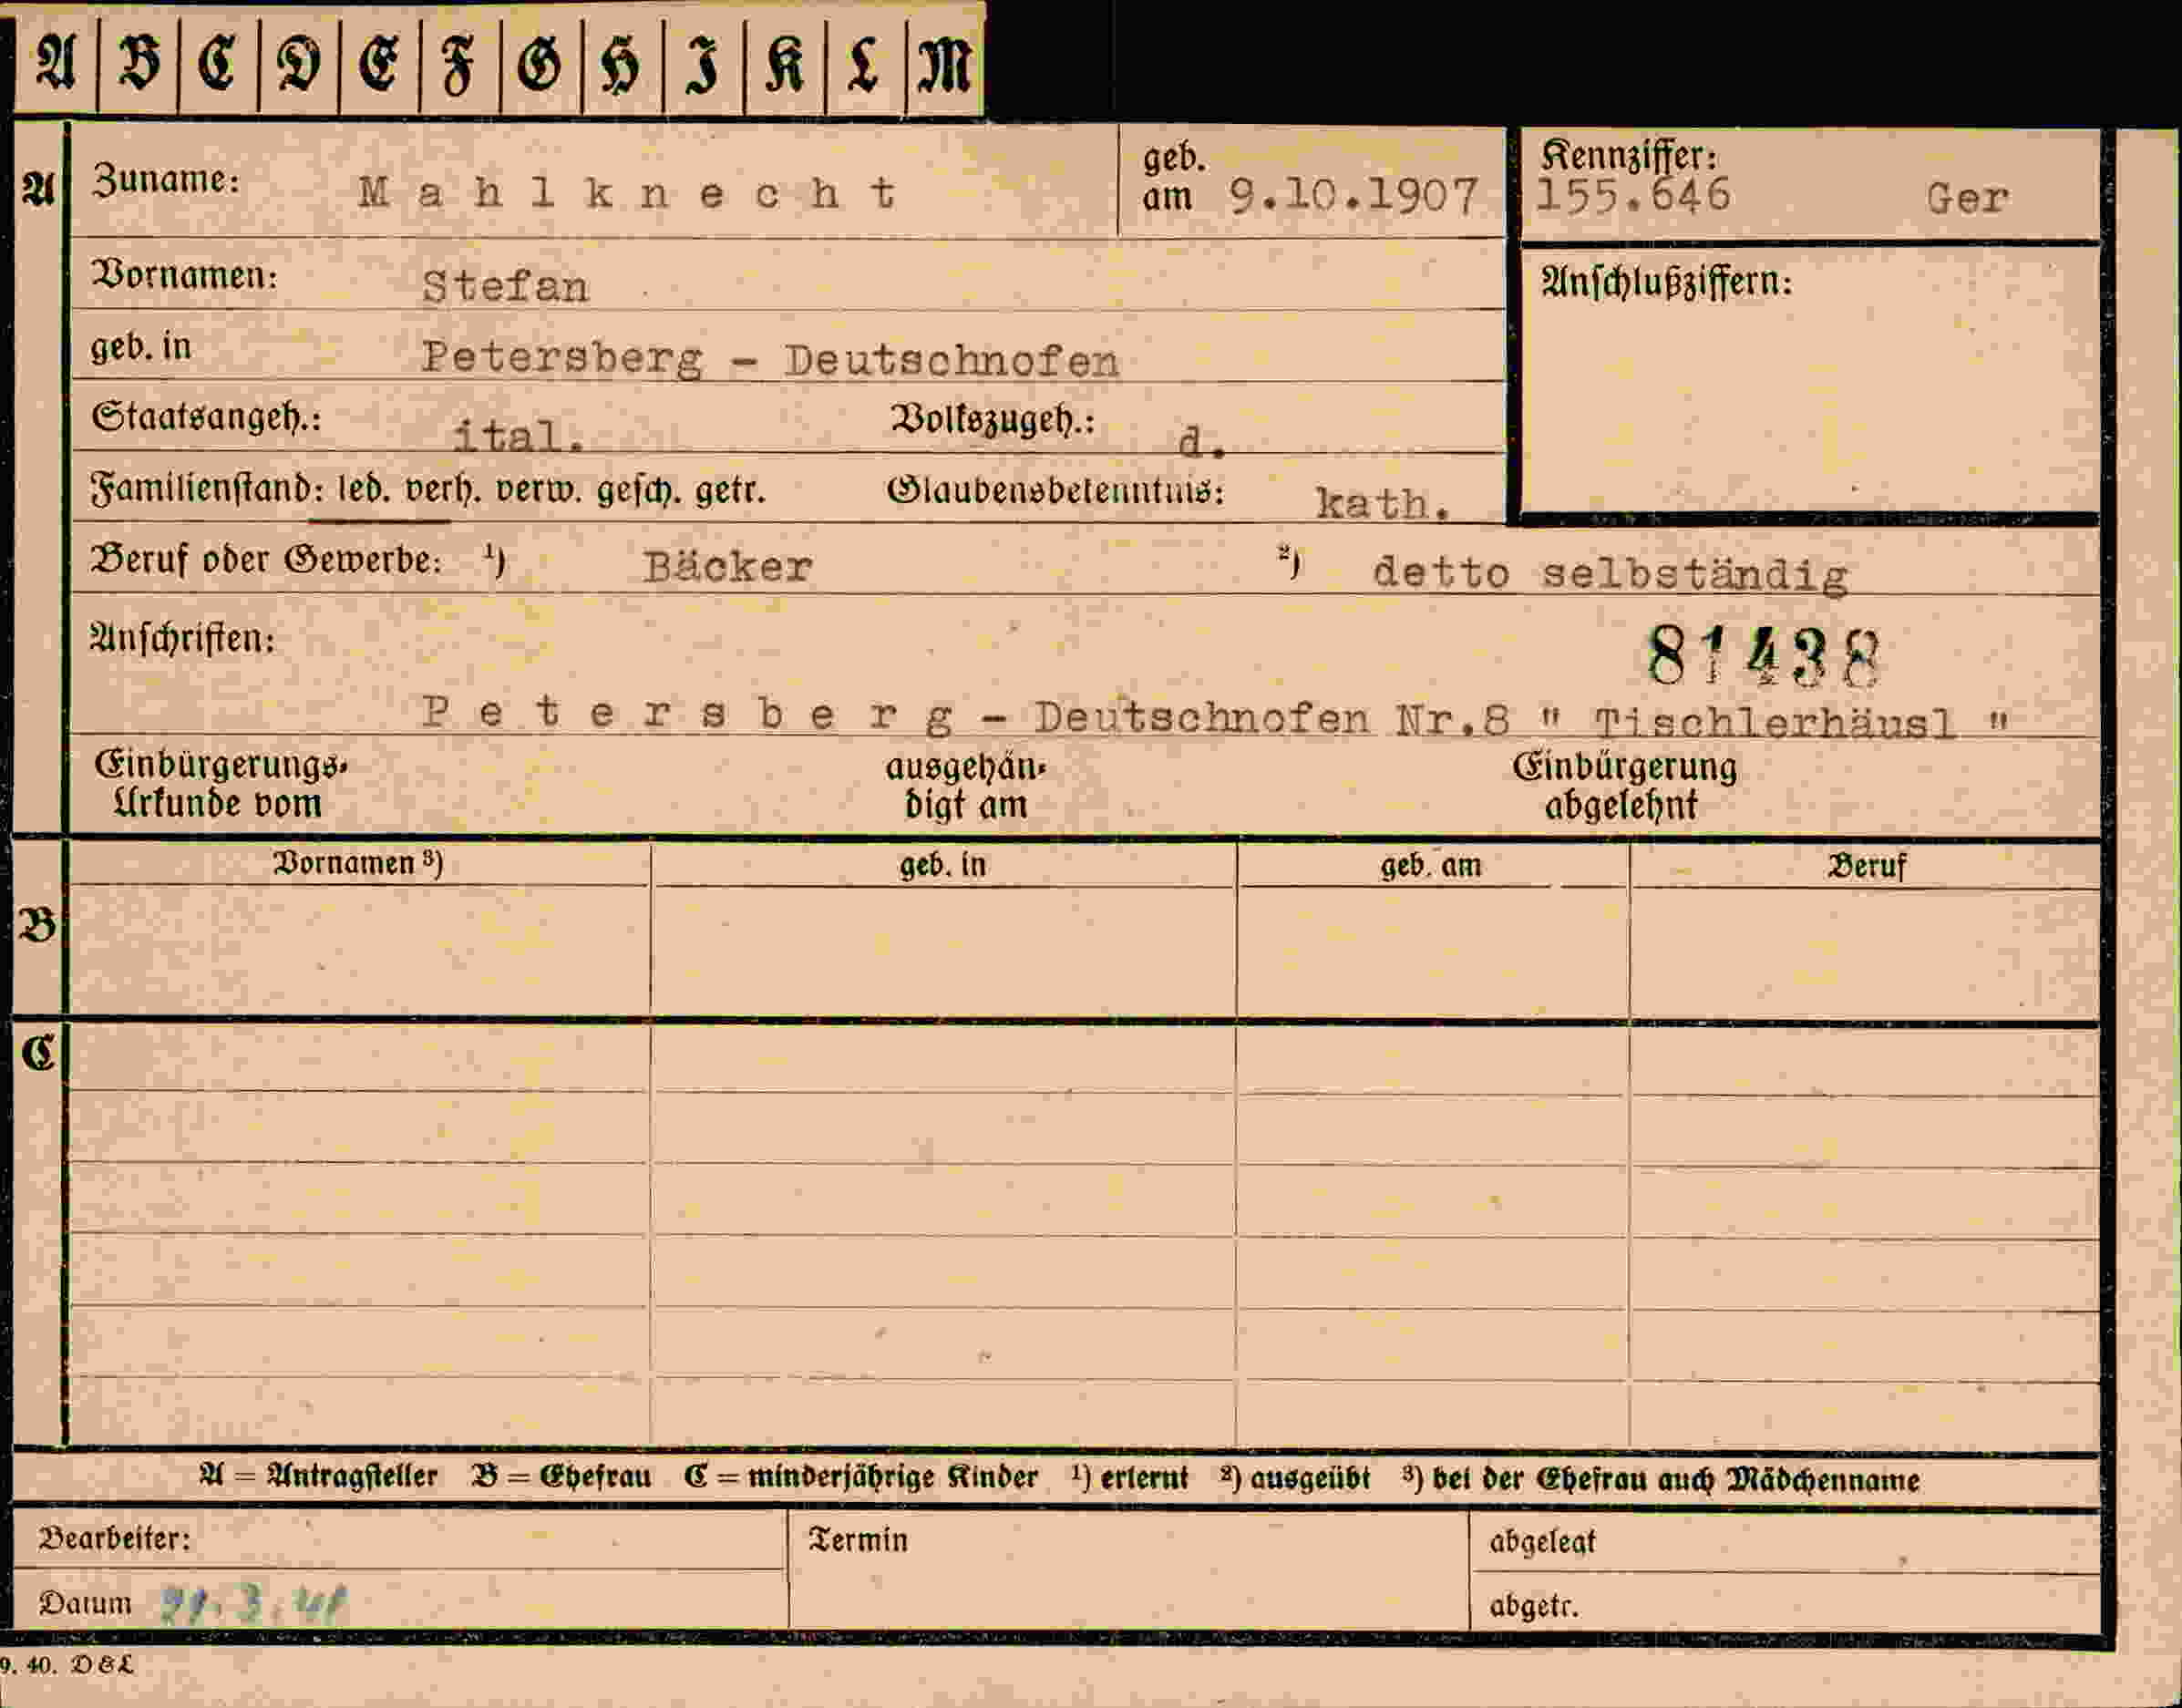 A B C D E F G H I K L M
A Zuname: Mahlknecht geb. am 9.10.1907 Kennziffer: 155.646 Ger
Vornamen: Stefan Anschlußziffern:
geb. in Petersberg - Deutschnofen
Staatsangeh.: ital. Volkszugeh.: d.
Familienstand: led. verh. verw. gesch. getr. Glaubensbekenntnis: kath.
Beruf oder Gewerbe: ¹) Bäcker ²) detto selbständig
Anschriften: 81438
Petersberg - Deutschnofen Nr.8 " Tischlerhäusl "
Einbürgerungs- ausgehän- Einbürgerung
Urkunde vom digt am abgelehnt
Vornamen ³) geb. in geb. am Beruf
B
C
A = Antragsteller B = Ehefrau C = minderjährige Kinder ¹) erlernt ²) ausgeübt ³) bei der Ehefrau auch Mädchenname
Bearbeiter: Termin abgelegt
Datum abgetr.
9. 40. D & L